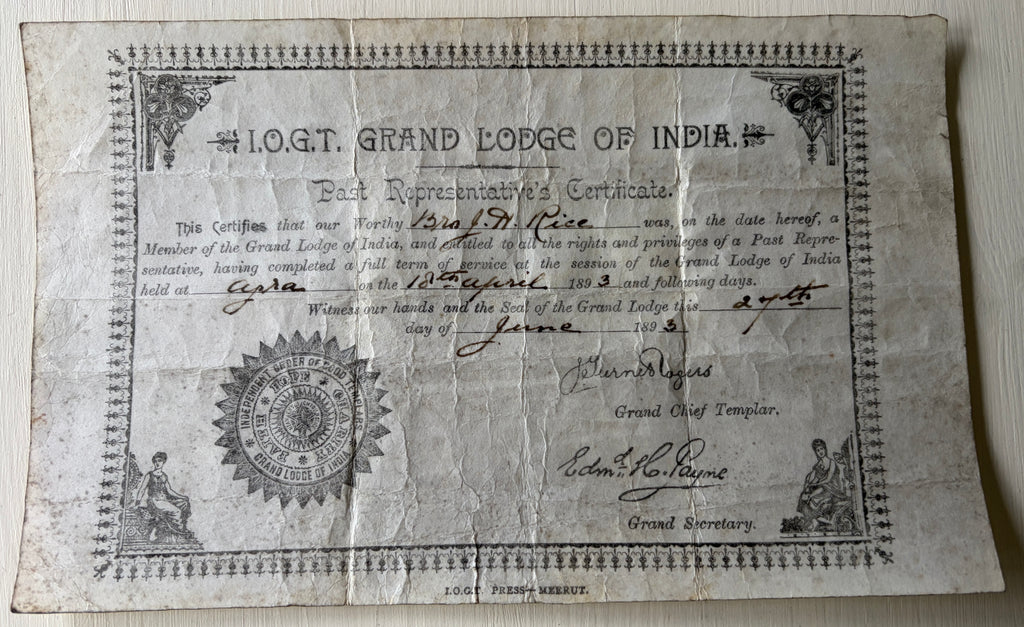 I.O.G.T. GRAND LODGE OF INDIA.
Past Representative's Certificate.
This Certifies that our Worthy Bro J. H. Rice was, on the date hereof, a
Member of the Grand Lodge of India, and entitled to all the rights and privileges of a Past Repre-
sentative, having completed a full term of service at the session of the Grand Lodge of India
held at Agra on the 18th April 1893 and following days.
Witness our hands and the Seal of the Grand Lodge this 27th
day of June 1893.
INDEPENDENT ORDER OF GOOD TEMPLARS
GRAND LODGE OF INDIA
FAITH HOPE CHARITY
J Turner Rogers
Grand Chief Templar.
Edmd. H. Payne
Grand Secretary.
I.O.G.T. PRESS—MEERUT.